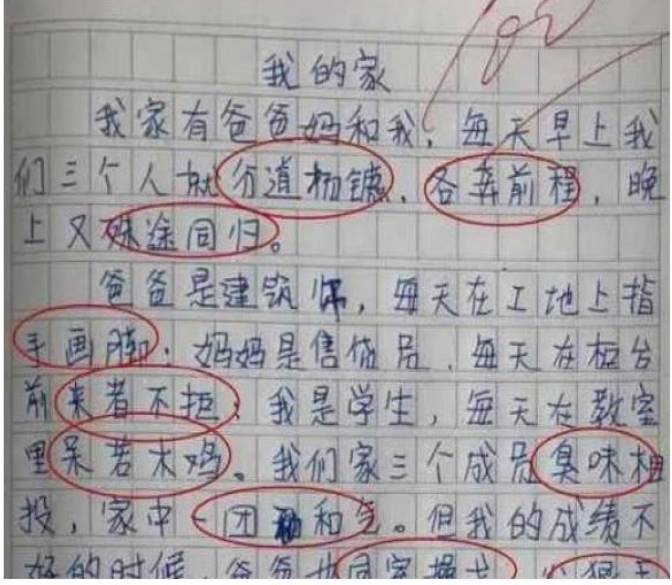 我的家
我家有爸爸妈和我，每天早上我
们三个人就分道杨镳、各奔前程，晚
上又殊途同归。
爸爸是建筑师，每天在工地上指
手画脚；妈妈是信贷员，每天在柜台
前来者不拒；我是学生，每天在教室
里呆若木鸡。我们家三个成员臭味相
投，家中一团和气。但我的成绩不
好的时候，爸爸也同室操戈，心狠手